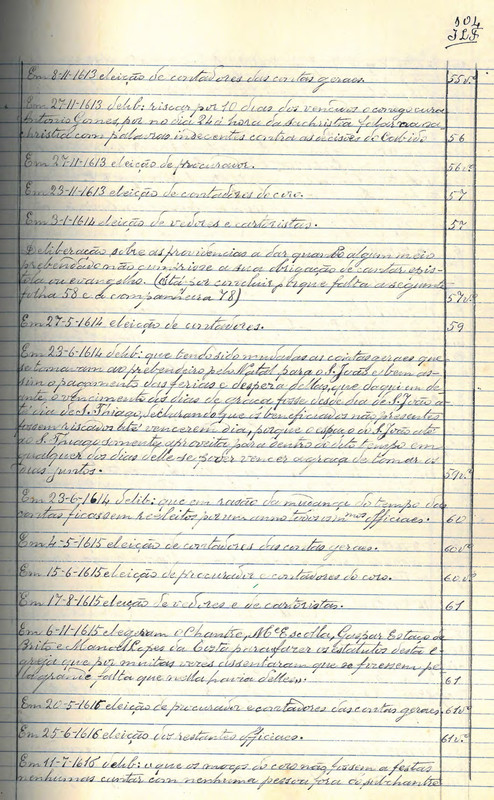 104
Em 8-11-1613 eleição de contadores das contas geraes. 55 v.º
Em 27-11-1613 delib: riscar por 10 dias dos vencidos o conego cura
Antonio Gomes por no dia 26 á hora da sachristia fallar na sa-
christia com palavras indecentes contra as decisões do Cabido 56
Em 27-11-1613 eleição de procurador. 56 v.º
Em 23-11-1613 eleição de contadores do coro. 57
Em 3-1-1614 eleição de vedores e cartoristas. 57
Deliberação sobre as providencias a dar quando algum meio
prebendado não cumprisse a sua obrigação de cantar epis-
tola ou evangelho. (Está por concluir porque falta a seguinte
folha 58 e a companheira 78) 57 v.º
Em 27-5-1614 eleição de contadores. 59
Em 23-6-1614 delib: que tendo sido mudadas as contas geraes que
se tomavam ao prebendeiro pelo Natal para o S. João e bem as-
sim o pagamento das ferias e despeza dellas, que daqui em de-
ante, o vencimento dos dias de graça fosse desde dia de S. João a-
té dia de S. Thiago, declarando que os beneficiados não presentes
fossem riscados até vencerem dia, porque o espaço de S. João até
ao S. Thiago sómente aproveita para dentro deste tempo em
qualquer dos dias delle se poder vencer a graça de tomar os
seus juntos. 59 v.º
Em 23-6-1614 delib: que em razão da mudança do tempo das
contas ficassem reeleitos por um anno todos os mais officiaes. 60
Em 4-5-1615 eleição de contadores das contas geraes. 60 v.º
Em 15-6-1615 eleição de procurador e contadores do coro. 60 v.º
Em 17-8-1615 eleição de vedores e de cartoristas. 61
Em 6-11-1615 elegeram o Chantre, M.e Escolla, Gaspar Estaço de
Brito e Manoel Lopes da Costa para fazer os estatutos desta e-
greja que por muitas vezes assentaram que se fizessem pe-
la grande falta que nella havia delles. 61
Em 20-5-1616 eleição de procurador e contadores das contas geraes. 61 v.º
Em 25-6-1616 eleição dos restantes officiaes. 61 v.º
Em 11-7-1616 delib: q que os moços do coro não fossem a festas
nenhumas cantar com nenhuma pessoa fóra o subchantre